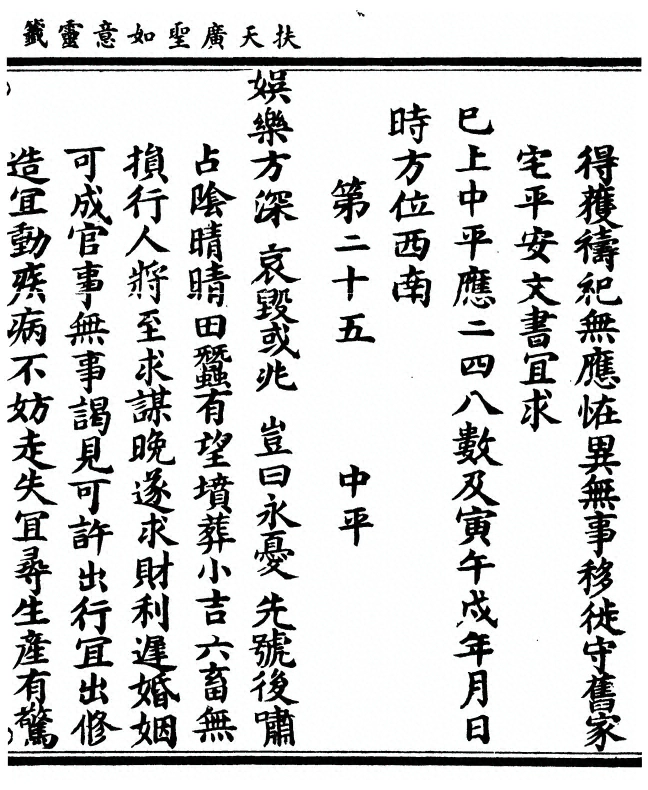 扶天廣聖如意靈籤
得獲禱祀無應恠異無事移徙守舊家
宅平安文書宜求
巳上中平應二四八數及寅午戌年月日
時方位西南
第二十五 中平
娛樂方深 哀毀或兆 豈曰永憂 先號後嘯
占陰晴晴田蠶有望墳葬小吉六畜無
損行人將至求謀晚遂求財利遲婚姻
可成官事無事謁見可許出行宜出修
造宜動疾病不妨走失宜尋生產有驚